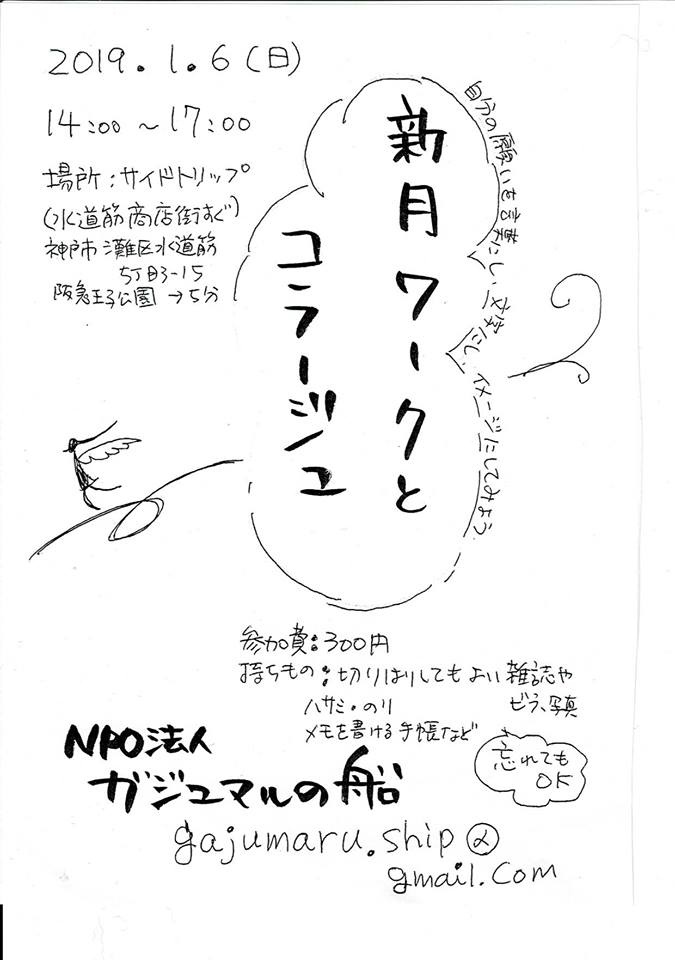 2019.1.6(日)
14:00〜17:00
場所:サイドトリップ
(水道筋商店街すぐ)
神戸市灘区水道筋
5丁目3-15
阪急王子公園→5分
新月ワークと
コラージュ
自分の願いを言葉にし、文字にし、イメージにしてみよう。
参加費:300円
持ちもの:切りはりしてもよい雑誌や
ビラ、写真
ハサミ・のり
メモを書ける手帳など
忘れても
OK
NPO法人
ガジュマルの船
gajumaru.ship@
gmail.com